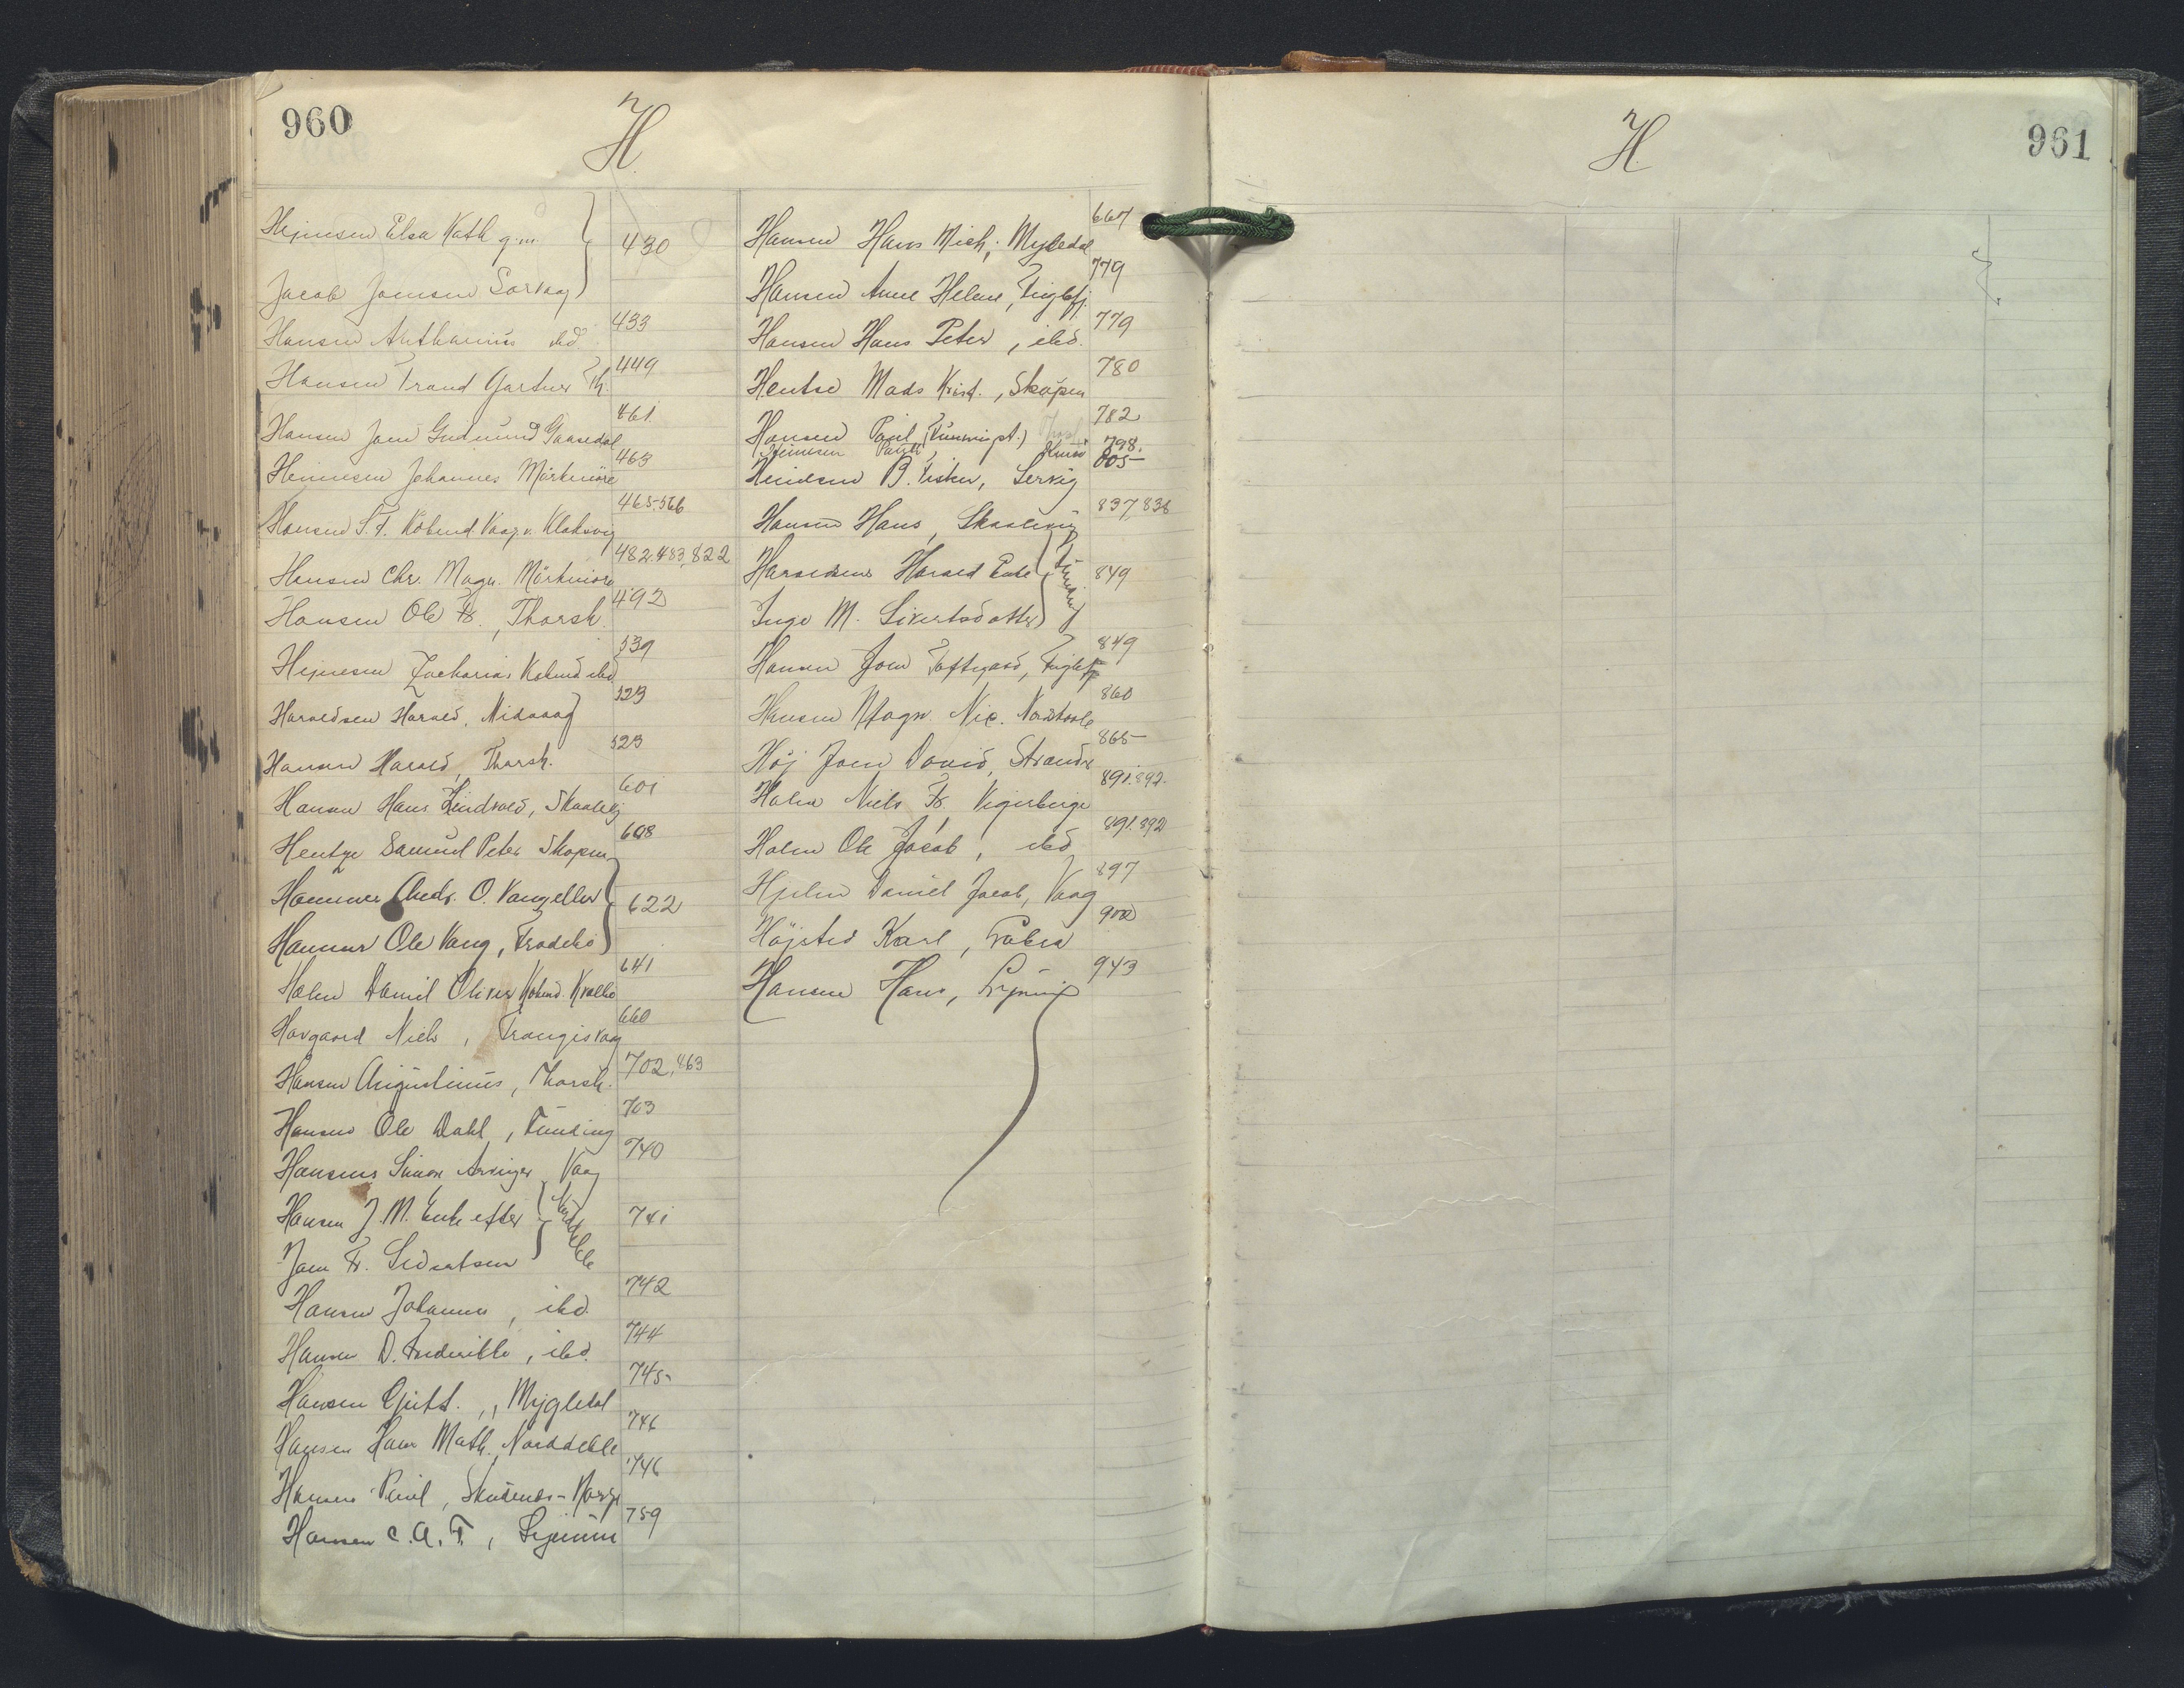 960
H.
Hejnesen Elsa Kath g.m.
Jacob Joensen Sørvaag
430
Hansen Anthonius ibd.
433
Hansen Trond Gartner Th.
449
Hansen Joen Gudmund Gaasedal
461.
Heinesen Johannes Mörkeniöre
463
Hansen S.F. Kobmd Vaag v. Klaksvig
465-566
Hansen Chr. Magn. Mörkniore
482.483,822
Hansen Ole Fr., Thorsh.
492
Hejnesen Zacharias Kobmd ibd
539
Haraldsen Harald, Midvaag
523
Hansen Harald, Thorsh.
523
Hansen Hans Lindvald, Skaalevig
601
Hentze Samuel Peter Skopen
608
Hammer Andr. O. Vang eller
Hammer Ole Vang, Frodebo
622
Holm Daniel Oliver Kobmd. Kvalbö
641
Havgaard Niels, Trangisvaag
660
Hansen Augustinus, Thorsh.
702,463
Hansen Ole Dahl, Funding
703
Hansens Simon Arvinger, Vaag
740
Hansen J.M. Enke efter
Joen Fr. Sivertsen
Norddeble
741
Hansen Johannes, ibd.
742
Hansen D. Frederikke, ibd.
744
Hansen Gjert., Mygledal
745
Hansen Hans Math. Norddeble
746
Hansen Paul, Skudenæs-Norge
746
Hansen C.A.F., Lejnum
759
Hansen Hans Mich; Mygledal
667
Hansen Anne Helene, Fuglefj.
779
Hansen Hans Peter, ibd.
779
Hentze Mads Krist., Skopen
780
Hansen Paul, (Funningsl.)
782
Heinesen Paul, Kunö
798.
Heinesen B. Fisker, Lervig
805
Hansen Hans, Skaalevig
837,838
Haraldsens Harald Enke
Inge M. Sivertsdatter
Funding
849
Hansen Joen Toftegaard, Fuglefj
849
Hansen Magn. Nic. Nordtoole
860
Høj Joen David, Strandr
865
Holm Niels Fr. Vejerberge
891.892.
Holm Ole Jacob, ibd
891.892
Hjelm Daniel Jacob, Vaag
897
Höjsted Karl, Porkeri
902
Hansen Hans, Lejnum
943
H.
961